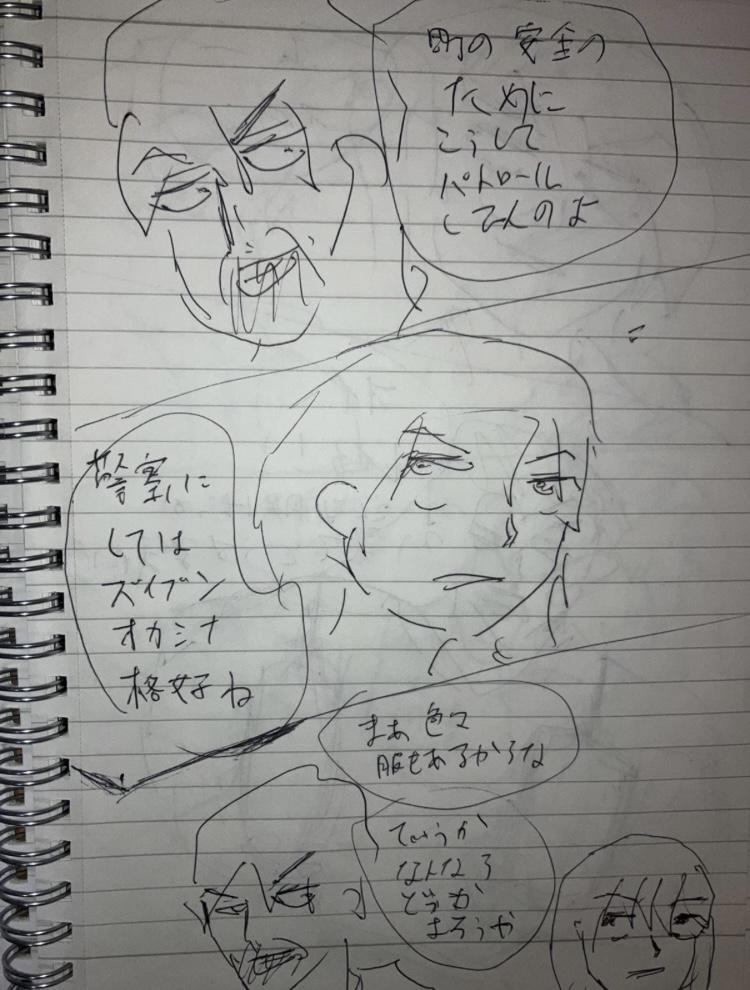 町の安全の
ために
こうして
パトロール
してんのよ
警察に
しては
ズイブン
オカシナ
格好ね
まあ色々
服もあるからな
てゆうか
なんなら
どうか